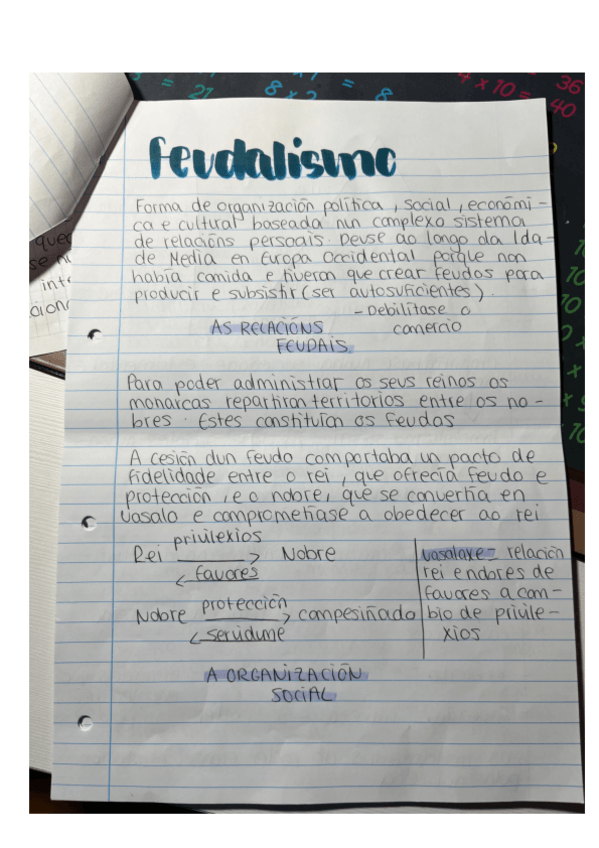 feudalismo
Forma de organización política, social, económi-
ca e cultural baseada nun complexo sistema
de relacións persoais. Deuse ao longo da Ida-
de Media en Europa Occidental porque non
había comida e tiveron que crear feudos para
producir e subsistir (ser autosuficientes).
- Debilítase o
comercio
AS RELACIÓNS
FEUDAIS
Para poder administrar os seus reinos os
monarcas repartiron territorios entre os no-
bres. Estes constituían os feudos
A cesión dun feudo comportaba un pacto de
fidelidade entre o rei, que ofrecía feudo e
protección, e o nobre, que se convertía en
vasalo e comprometíase a obedecer ao rei
privilexios
Rei → Nobre
← favores
protección
Nobre → campesiñado
← servidume
vasalaxe = relación
rei e nobres de
favores a cam-
bio de privile-
xios
A ORGANIZACIÓN
SOCIAL
= 21
8 x 2 = 8
4 x 10 = 40
36
que
se n
inte
cion
10
10
10